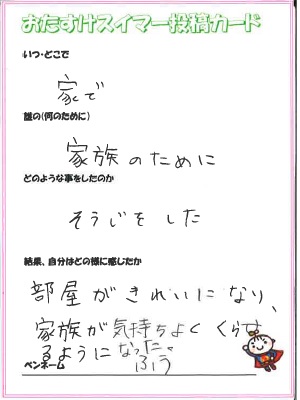 おたすけスイマー投稿カード
いつ・どこで
家で
誰の(何のために)
家族のために
どのような事をしたのか
そうじをした
結果、自分はどの様に感じたか
部屋がきれいになり、
家族が気持ちよくくらせ
るようになった。
ペンネーム ふう